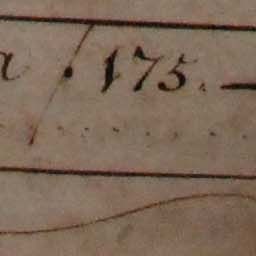 a / . 175. —